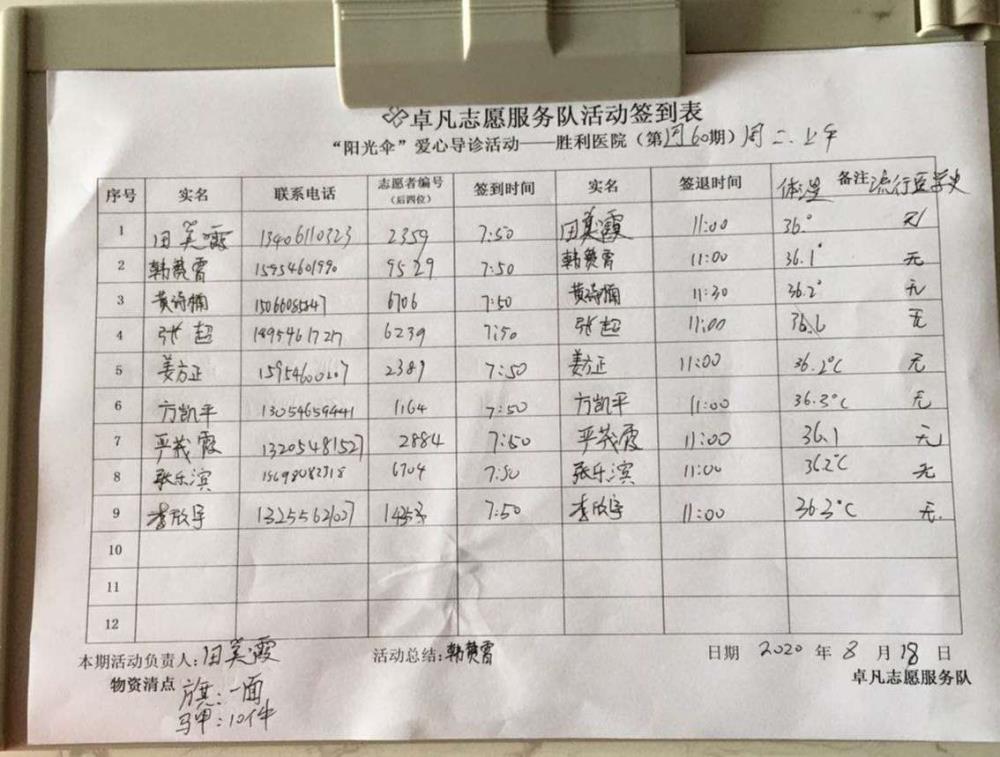 卓凡志愿服务队活动签到表
“阳光伞”爱心导诊活动——胜利医院（第 60期）周二.上午
序号 实名 联系电话 志愿者编号（后四位） 签到时间 实名 签退时间 体温 备注 流行医学史
1 田美霞 13406110323 2359 7:50 田美霞 11:00 36.° 无
2 韩赞霄 15954601990 9529 7:50 韩赞霄 11:00 36.1° 无
3 黄诗楠 6706 7:50 黄诗楠 11:30 36.2° 无
4 张超 6239 7:50 张超 11:00 36.6 无
5 姜方正 2389 7:50 姜方正 11:00 36.2°C 无
6 方凯平 13054659441 1164 7:50 方凯平 11:00 36.3°C 无
7 严茂霞 13205481527 2884 7:50 严茂霞 11:00 36.1 无
8 张乐滨 15698082318 6704 7:50 张乐滨 11:00 36.2°C 无
9 李欣宇 13255621027 7:50 李欣宇 11:00 36.3°C 无.
10
11
12
本期活动负责人:田美霞 活动总结:韩赞霄 日期 2020 年 8 月 18 日
物资清点 卓凡志愿服务队
旗:一面
马甲:10件